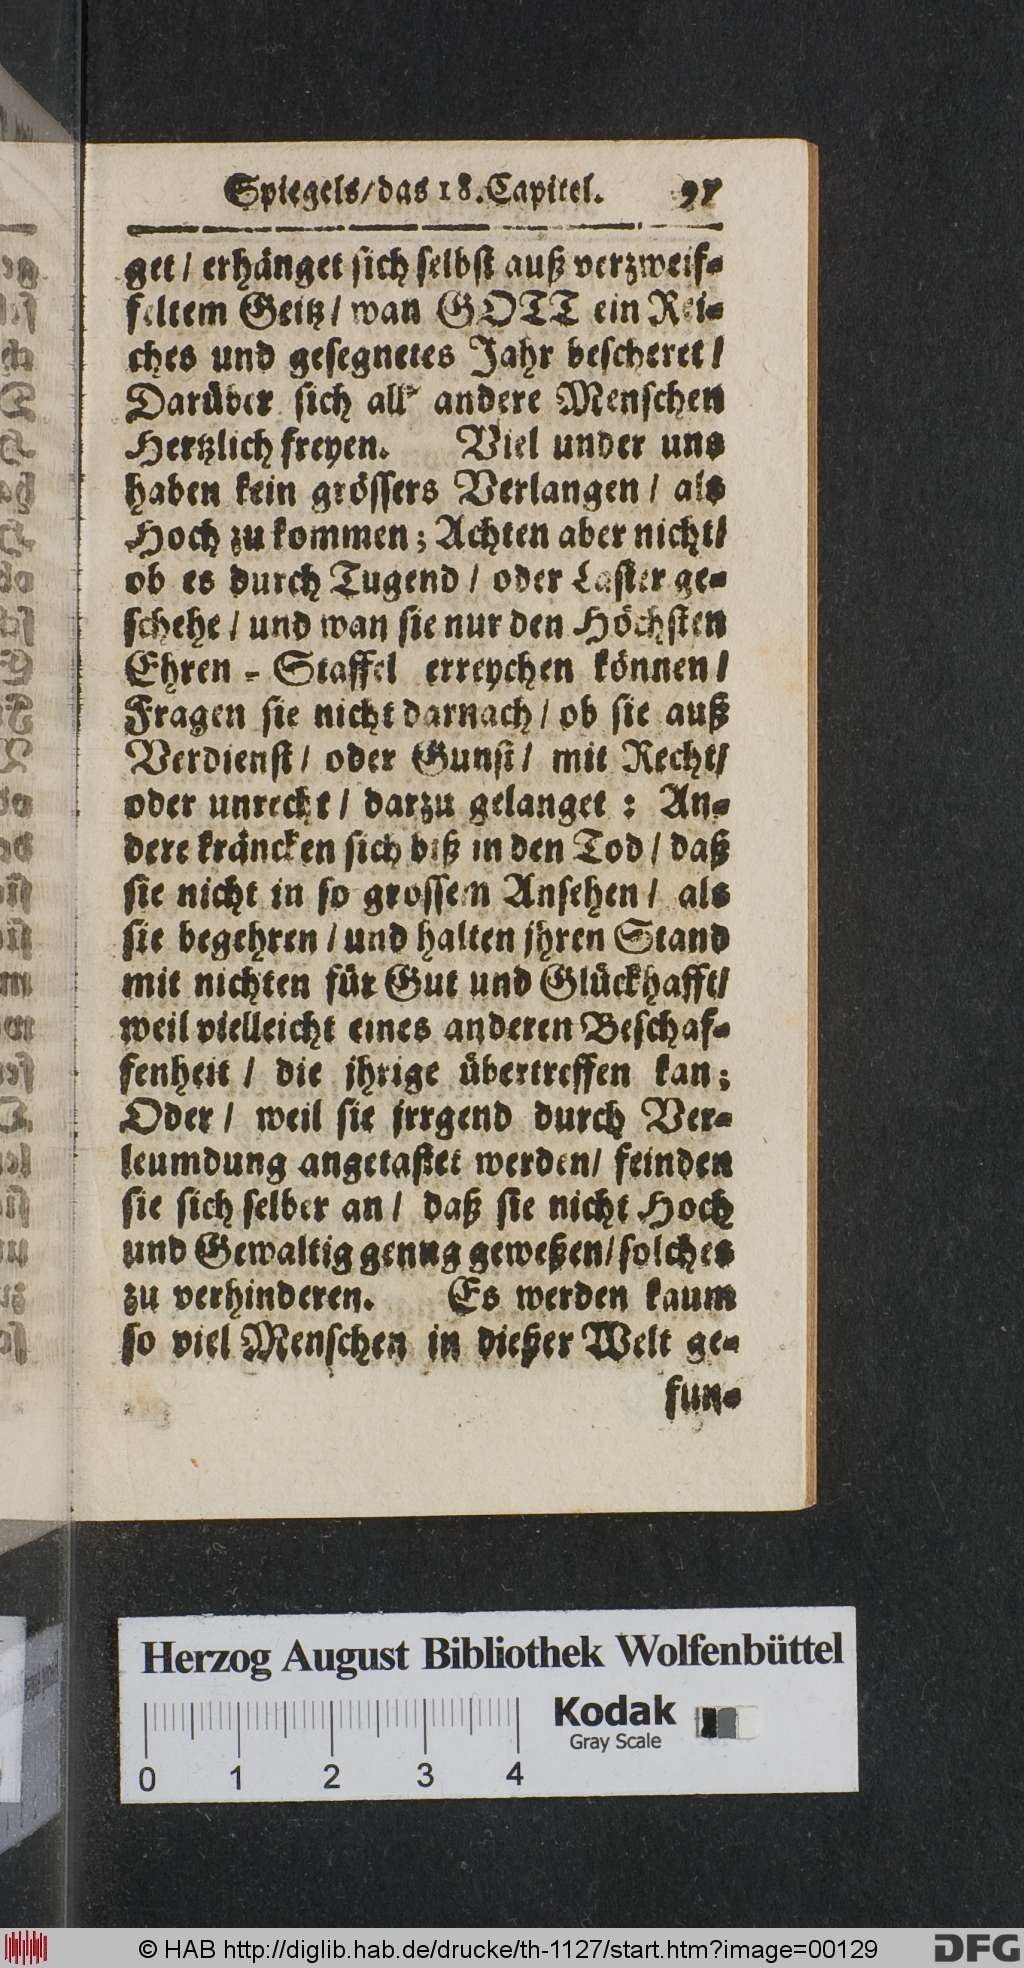 Spiegels/das 18. Capitel. 97
get / erhänget sich selbst auß verzweif-
feltem Geitz / wan GOTT ein Rei-
ches und gesegnetes Jahr bescheret /
Darüber sich all' andere Menschen
Hertzlich freyen. Viel under uns
haben kein grössers Verlangen / als
Hoch zu kommen; Achten aber nicht/
ob es durch Tugend / oder Laster ge-
schehe / und wan sie nur den Höchsten
Ehren - Staffel erreychen können /
Fragen sie nicht darnach / ob sie auß
Verdienst / oder Gunst / mit Recht/
oder unrecht / darzu gelanget : An-
dere kräncken sich biß in den Tod / daß
sie nicht in so grossem Ansehen / als
sie begehren / und halten jhren Stand
mit nichten für Gut und Glückhafft/
weil vielleicht eines anderen Beschaf-
fenheit / die jhrige übertreffen kan;
Oder / weil sie jrrgend durch Ver-
leumdung angetastet werden / feinden
sie sich selber an / daß sie nicht Hoch
und Gewaltig genug geweßen / solches
zu verhinderen. Es werden kaum
so viel Menschen in dießer Welt ge-
fun-
Herzog August Bibliothek Wolfenbüttel
Kodak
Gray Scale
0 1 2 3 4
© HAB http://diglib.hab.de/drucke/th-1127/start.htm?image=00129
DFG